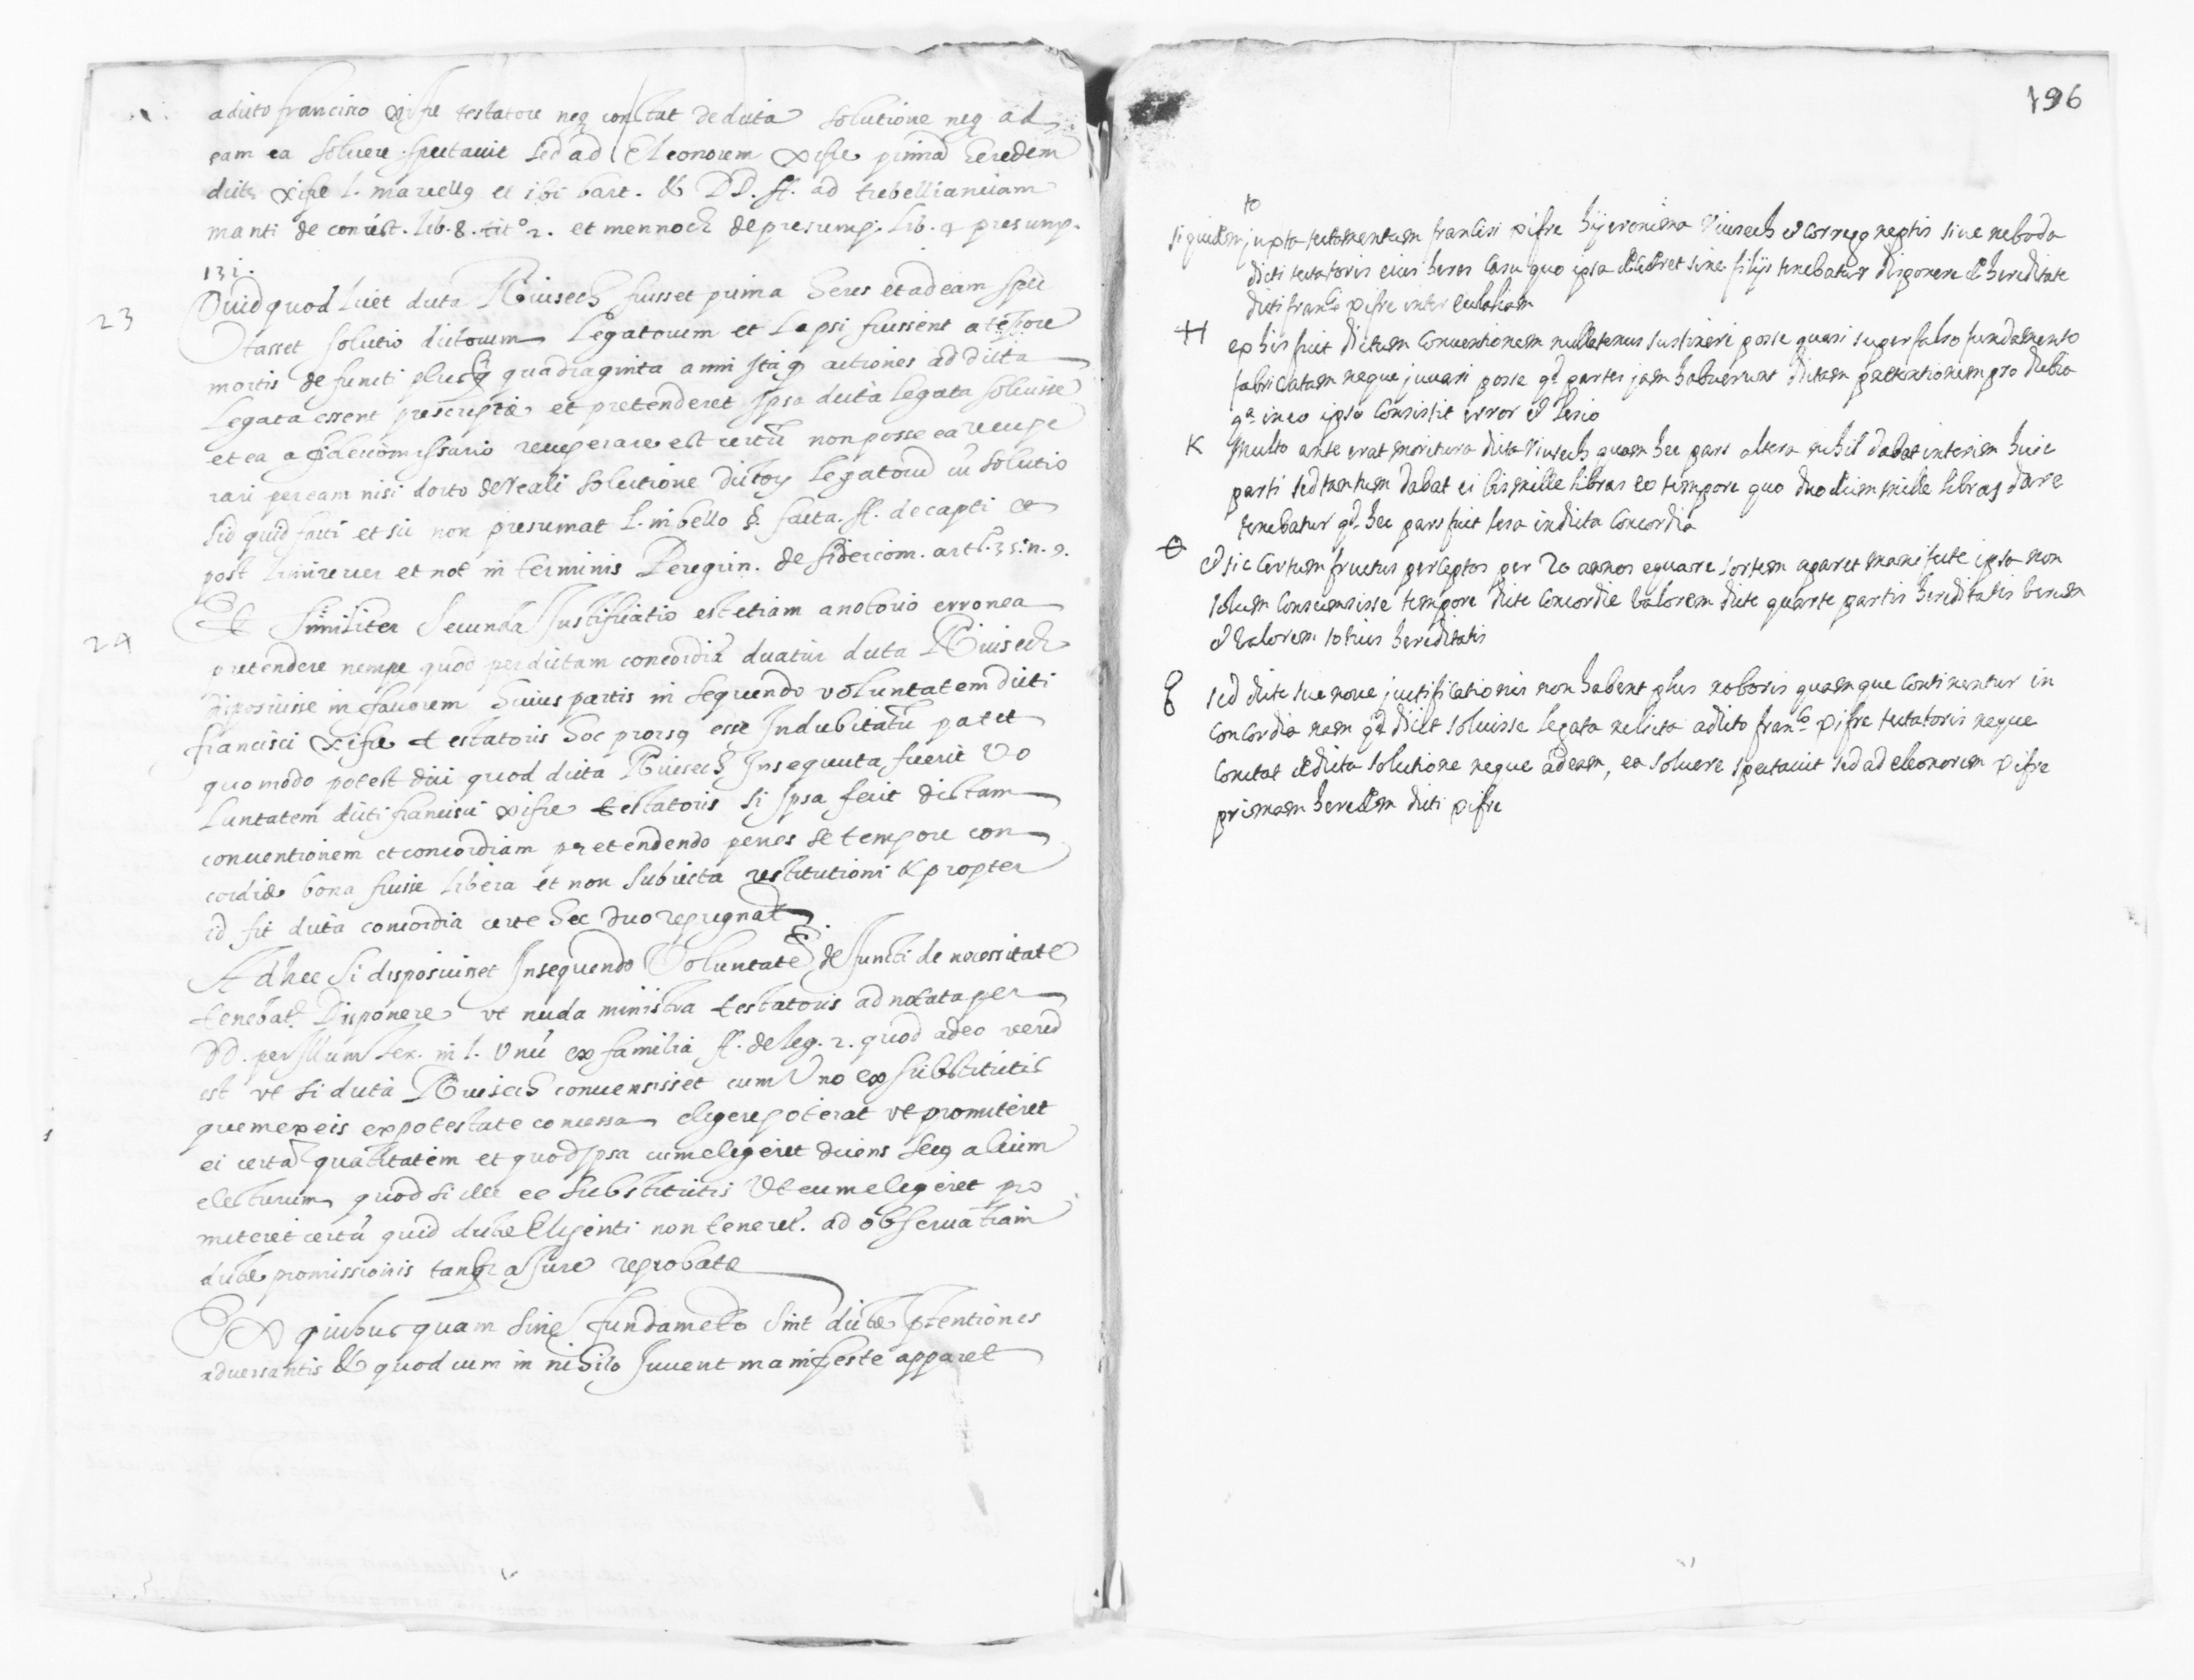 a dicto francisco xifre testatore neq constat de dicta solutione neq ad
eam ea soluere spectauit sed ad Eleonorem xifre primã heredem
dicti xifre l. marcellq et ibi bart. & DD. ff. ad trebellianicam
manti de coniect. lib. 8. tit.º 2. et mennoch de presump. lib. 4 presump.
131.
23 Quid quod licet dicta Riusech fuisset prima heres et ad eam spec
tasset solutio dictorum Legatorum et Lapsi fuissent a tẽpore
mortis defuncti plusq quadraginta anni itaq actiones ad dicta
Legata essent prescripta et pretenderet ipsa dicta legata soluisse
et ea a fideicomissario recuperare est certũ non posse ea recupe
rari per eam nisi docto de reali solutione dictoq Legatorũ cũ solutio
sid quid facti et sic non presumat l. in bello §. facta. ff. de capti et
post liminreuer et not in terminis Peregrin. de fideicom. artic. 35. n. 9.
24 Et similiter secunda Justificatio est etiam a notorio erronea
pretendere nempe quod per dictam concordiã duatur dicta Riusech
disposuisse in fauorem huius partis in sequendo voluntatem dicti
francisci xifre testatoris hoc prorsq esse Indubitatũ patet
quomodo potest dici quod dicta Riusech Insequuta fuerit vo
luntatem dicti francisci xifre testatoris si ipsa fecit dictam
conuentionem et concordiam pretendendo penes se tempore con
cordie bona fuisse libera et non subiecta restitutioni & propter
id fit dicta concordia certe hec duo repugnat
Adhec si disposuisset Insequendo voluntatẽ defuncti de necessitate
tenebat. Disponere vt nuda ministra testatoris ad notata per
DD. per illum tex. in l. vnũ ex familia ff. de leg. 2. quod adeo verũ
est vt si dicta Riusech conuensisset cum vno ex substitutis
quem ex eis ex potestate concessa eligere poterat vt promiteret
ei certã quatitatem et quod ipsa eum eligeret dicens secq alium
electurum quod si ille ee substitutis vt eum eligeret pro
miteret certũ quid dicte Eligenti non teneret. ad obseruatiam
dicte promissionis tanq a Jure reprobate
Ex quibus quam sine fundameto sint dicte ptentiones
aduersantis & quod eum in nihilo Juuent manifeste apparet
196
to
siquidem juxta testamentum francisci xifre hijeronima Riusech et Correg neptis siue neboda
dicti testatoris eius heres casu quo ipsa decederet sine filijs tenebatur disponere de hereditate
dicti franco xifre inter eulaliam
H ex his fuit dictam conuentionem nullatenus sustineri posse quasi super falso fundamento
fabricatam neque juuari posse qd partes jam habuerunt dictam prestationem pro dubia
qa in eo ipso consistit error et lesio
K multo ante erat moritura dicta Riusech quam hec pars altera nihil dabat interim huic
parti sed tantum dabat ei bis mille libras eo tempore quo duodecim mille libras dare
tenebatur qd hec pars fuit lesa in dicta concordia
O et sic certum fructus perceptos per 20 annos equare sortem aparet manifeste ipsa non
solum consumsisse tempore dicte concordie valorem dicte quarte partis hereditatis verum
et valorem totius hereditatis
8 sed dicte sue noue justificationis non habent plus roboris quam que continentur in
concordia nam qd dicit soluisse legata relicta a dicto franco xifre testatoris neque
constat de dicta solutione neque ad eam, ea soluere spectauit sed ad eleonorem xifre
primam heredem dicti xifre